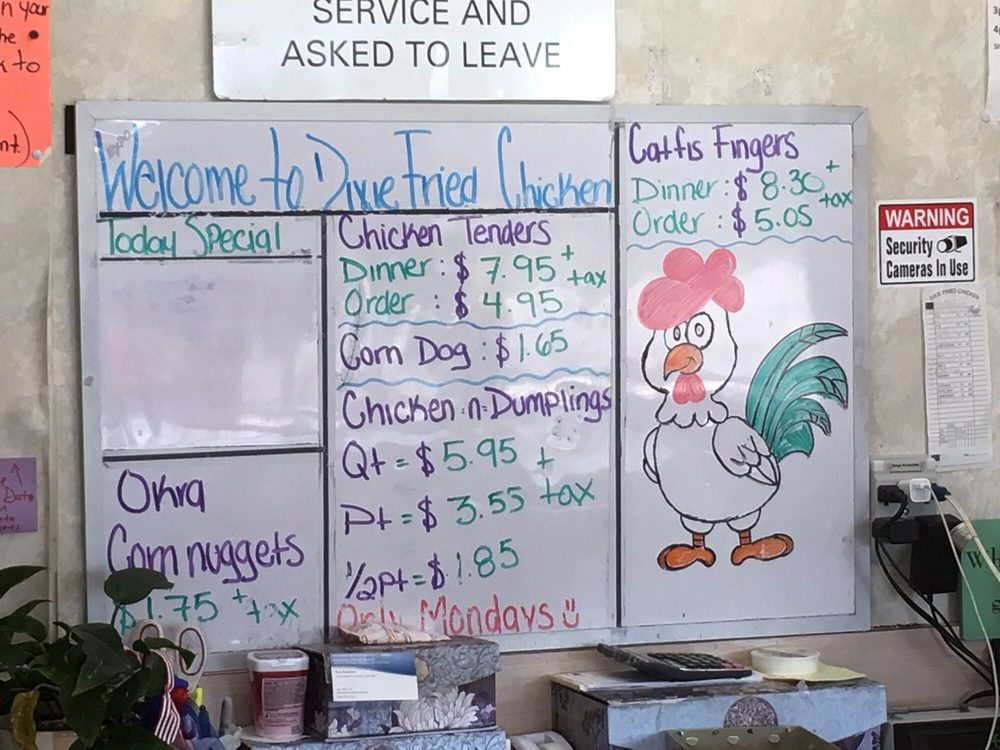 SERVICE AND
ASKED TO LEAVE
n your
he
k to
nt.)
Welcome to Dixie Fried Chicken
Today Special
Okra
Corn nuggets
$1.75 + tax
Chicken Tenders
Dinner : $ 7.95 + tax
Order : $ 4.95
Corn Dog : $1.65
Chicken-n-Dumplings
Qt = $5.95 + tax
Pt = $ 3.55
1/2pt = $1.85
Only Mondays
Catfis Fingers
Dinner : $ 8.30 + tax
Order : $ 5.05
WARNING
Security
Cameras In Use
DIXIE FRIED CHICKEN
Date